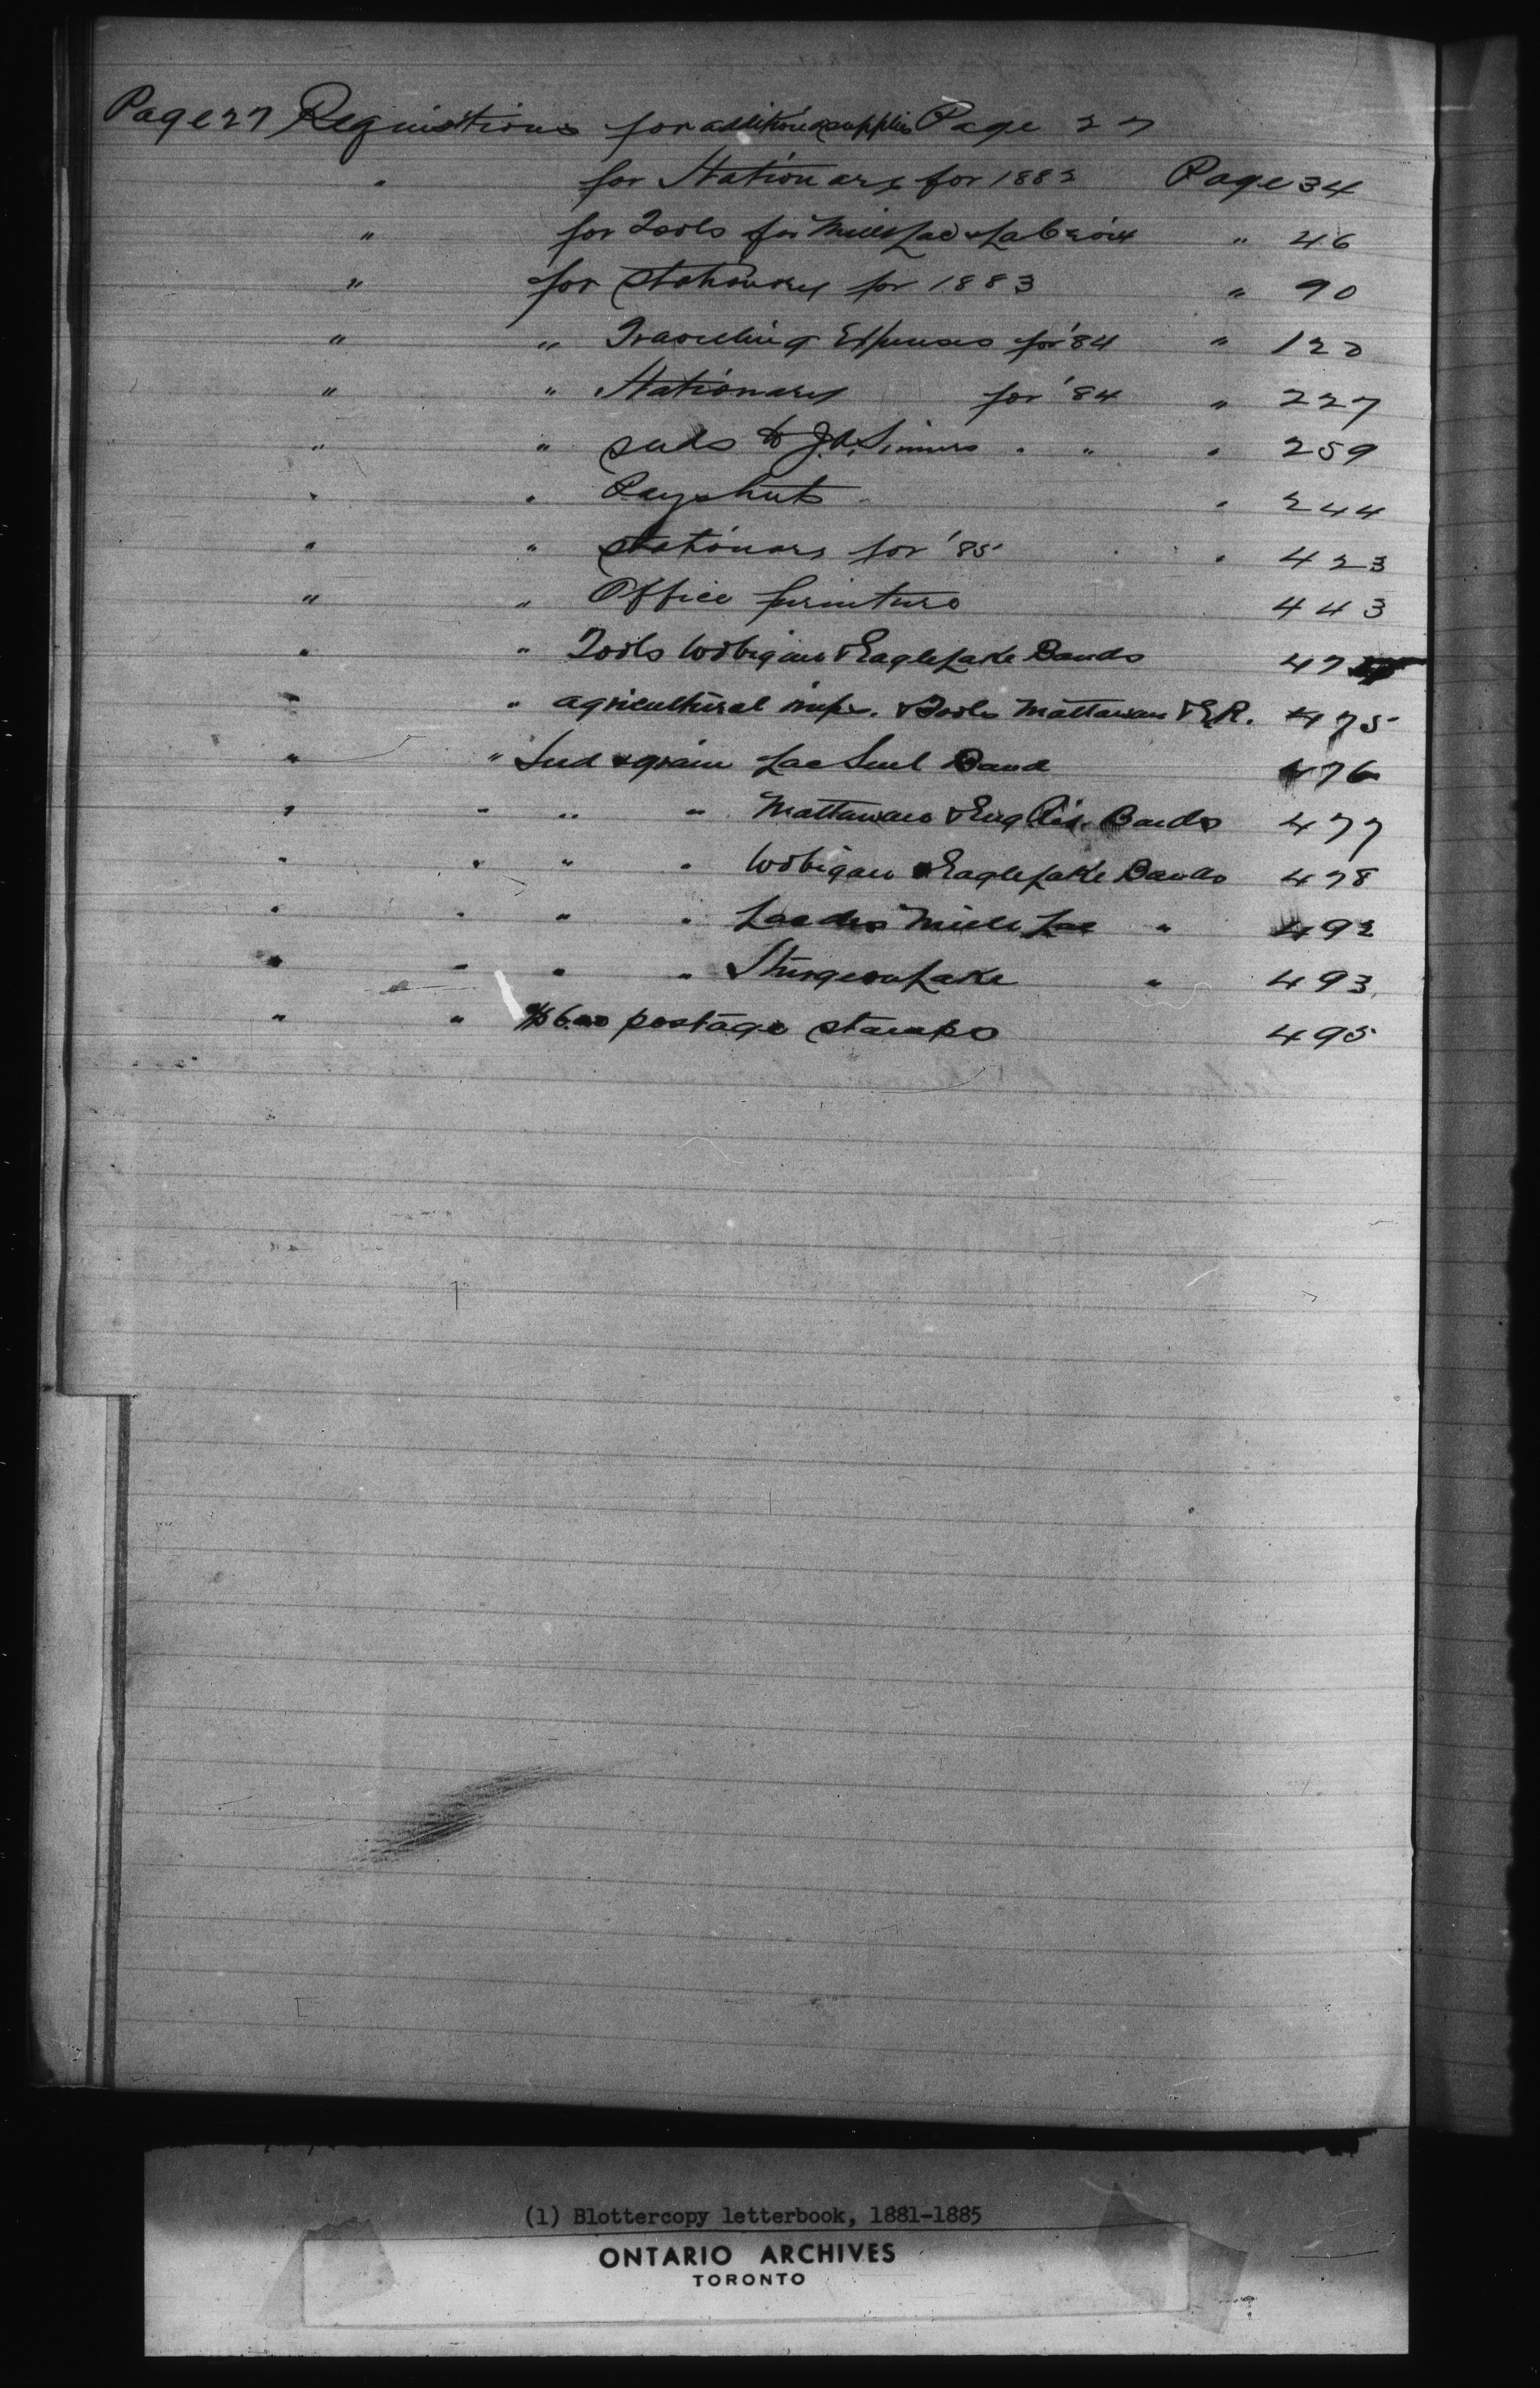 Page 27 Requisitions for additional supplies Page 27
" for Stationary for 1882 Page 34
" for Tools for Mille Lac & La Croix " 46
" for Stationary for 1883 " 90
" " Travelling Expenses for '84 " 120
" " Stationary for '84 " 227
" " seeds to J.A. Simmers " " " 259
" " Paysheets " 244
" " stationary for '85 " 423
" " Office furniture 443
" " Tools Wobigaw & Eagle Lake Bands 47
" " agricultural imps. & Tools Mattawan & E.R. 475
" " Seed & grain Lac Seul Band 476
" " " " Mattawan & Eng. Riv. Bands 477
" " " " Wobigaw & Eagle Lake Bands 478
" " " " Lac des Mille Lac " 492
" " " " Sturgeon Lake " 493
" " $6.00 postage stamps 495
(1) Blottercopy letterbook, 1881-1885
ONTARIO ARCHIVES
TORONTO